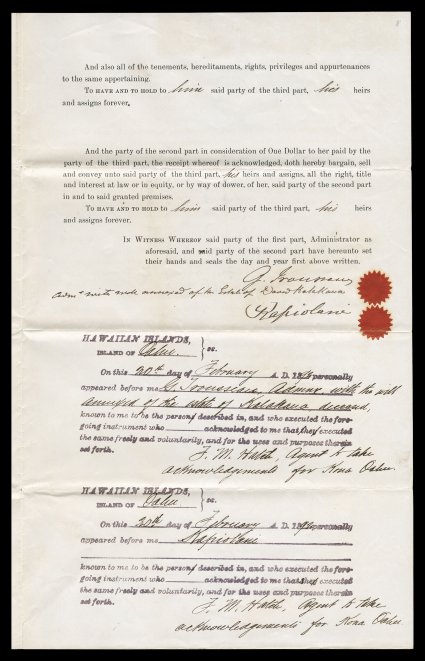 8
And also all of the tenements, hereditaments, rights, privileges and appurtenances
to the same appertaining.
TO HAVE AND TO HOLD to him said party of the third part, his heirs
and assigns forever.
And the party of the second part in consideration of One Dollar to her paid by the
party of the third part, the receipt whereof is acknowledged, doth hereby bargain, sell
and convey unto said party of the third part, his heirs and assigns, all the right, title
and interest at law or in equity, or by way of dower, of her, said party of the second part
in and to said granted premises.
TO HAVE AND TO HOLD to him said party of the third part, his heirs
and assigns forever.
IN WITNESS WHEREOF said party of the first part, Administrator as
aforesaid, and said party of the second part have hereunto set
their hands and seals the day and year first above written.
G. Trousseau
Admr with will annexed of the Estate of David Kalakaua
Kapiolani
HAWAIIAN ISLANDS,
ISLAND OF Oahu } ss.
On this 20th day of February A. D. 18 personally
appeared before me G. Trousseau, Admor with the will
annexed of the estate of Kalakaua deceased,
known to me to be the person described in, and who executed the fore-
going instrument who acknowledged to me that he executed
the same freely and voluntarily, and for the uses and purposes therein
set forth.
F. M. Hatch, Agent to take
acknowledgements for Kona Oahu.
HAWAIIAN ISLANDS,
ISLAND OF Oahu } ss.
On this 20th day of February A. D. 18 personally
appeared before me Kapiolani
known to me to be the person described in, and who executed the fore-
going instrument who acknowledged to me that executed
the same freely and voluntarily, and for the uses and purposes therein
set forth.
F. M. Hatch, Agent to take
acknowledgements for Kona Oahu.